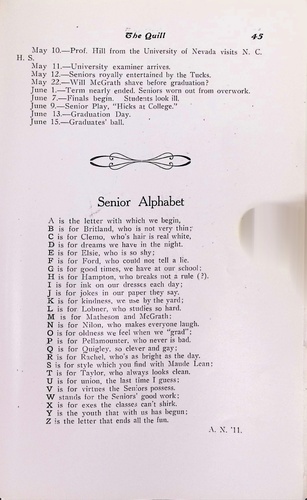 The Quill 45
May 10.—Prof. Hill from the University of Nevada visits N. C.
H. S.
May 11.—University examiner arrives.
May 12.—Seniors royally entertained by the Tucks.
May 22.—Will McGrath shave before graduation?
June 1.—Term nearly ended. Seniors worn out from overwork.
June 7.—Finals begin. Students look ill.
June 9.—Senior Play, "Hicks at College."
June 13.—Graduation Day.
June 15.—Graduates' ball.
Senior Alphabet
A is the letter with which we begin,
B is for Britland, who is not very thin;
C is for Clemo, who's hair is real white,
D is for dreams we have in the night.
E is for Elsie, who is so shy;
F is for Ford, who could not tell a lie.
G is for good times, we have at our school;
H is for Hampton, who breaks not a rule (?).
I is for ink on our dresses each day;
J is for jokes in our paper they say.
K is for kindness, we use by the yard;
L is for Lobner, who studies so hard.
M is for Matheson and McGrath;
N is for Nilon, who makes everyone laugh.
O is for oddness we feel when we "grad";
P is for Pellamounter, who never is bad.
Q is for Quigley, so clever and gay;
R is for Rachel, who's as bright as the day.
S is for style which you find with Maude Lean;
T is for Taylor, who always looks clean.
U is for union, the last time I guess;
V is for virtues the Seniors possess.
W stands for the Seniors' good work;
X is for exes the classes can't shirk.
Y is the youth that with us has begun;
Z is the letter that ends all the fun.
A. N. '11.